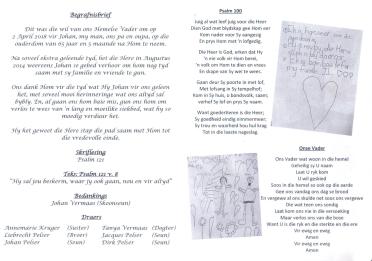 Begrafnisbrief
Dit was die wil van ons Hemelse Vader om op
2 April 2018 vir Johan, my man, ons pa en oupa, op die
ouderdom van 65 jaar en 5 maande na Hom te neem.
Na soveel ekstra geleende tyd, het die Here in Augustus
2014 weereens Johan se gebed verhoor om hom nog tyd
saam met sy familie en vriende te gun.
Ons dank Hom vir die tyd wat Hy Johan vir ons geleen
het, met soveel mooi herinneringe wat ons altyd sal
bybly. En, al gaan ons hom baie mis, gun ons hom om
verlos te wees van 'n lang en moeilike siekbed, wat hy so
moedig verduur het.
Hy het geweet die Here stap die pad saam met Hom tot
die vredevolle einde.
Skriflesing
Psalm 121
Teks: Psalm 121 v. 8
"Hy sal jou bewaar, waar jy ook gaan, nou en vir altyd"
Bedankings
Johan Vermaas (Skoonseun)
Draers
Annemarie Kruger (Suster) Tanya Vermaas (Dogter)
Liebrecht Pelser (Broer) Jacques Pelser (Seun)
Johan Pelser (Seun) Dirk Pelser (Seun)
Psalm 100
Juig al wat leef juig voor die Heer
Dien God met blydskap gee Hom eer
Kom nader voor Sy aangesig
En prys Hom met 'n lofgedig.
Die Heer is God, erken dat Hy
'n eie volk vir Hom berei,
'n volk om Hom te dien en vrees
En skape van Sy wei te wees.
Gaan deur Sy poorte in met lof,
Met lofsang in Sy tempelhof;
Kom in Sy huis, o bondsvolk, saam;
verhef Sy lof en prys Sy naam.
Want goedertieren is die Heer;
Sy goedheid eindig nimmermeer;
Sy trou en waarheid hou hul krag
Tot in die laaste nageslag.
Onse Vader
Ons Vader wat woon in die hemel
Geheilig sy U naam
Laat U ryk kom
U wil geskied
Soos in die hemel so ook op die aarde
Gee ons vandag ons dag se brood
En vergewe al ons skulde net soos ons vergewe
Die wat teen ons sondig
Laat kom ons nie in die versoeking
Maar verlos ons van die bose
Want U is die ryk en die sterkte en die ere
Vir ewig en ewig
Amen
Vir ewig en ewig
Amen